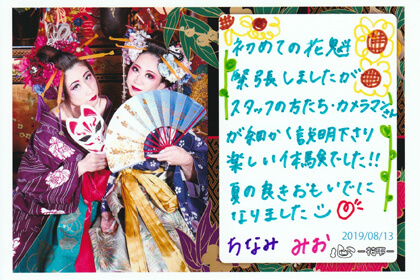 初めての花魁
緊張しましたが
スタッフの方たち・カメラマンさん
が細かく説明下さり
楽しい体験でした!!
夏の良きおもいでに
なりました
ちなみ みお
2019/08/13